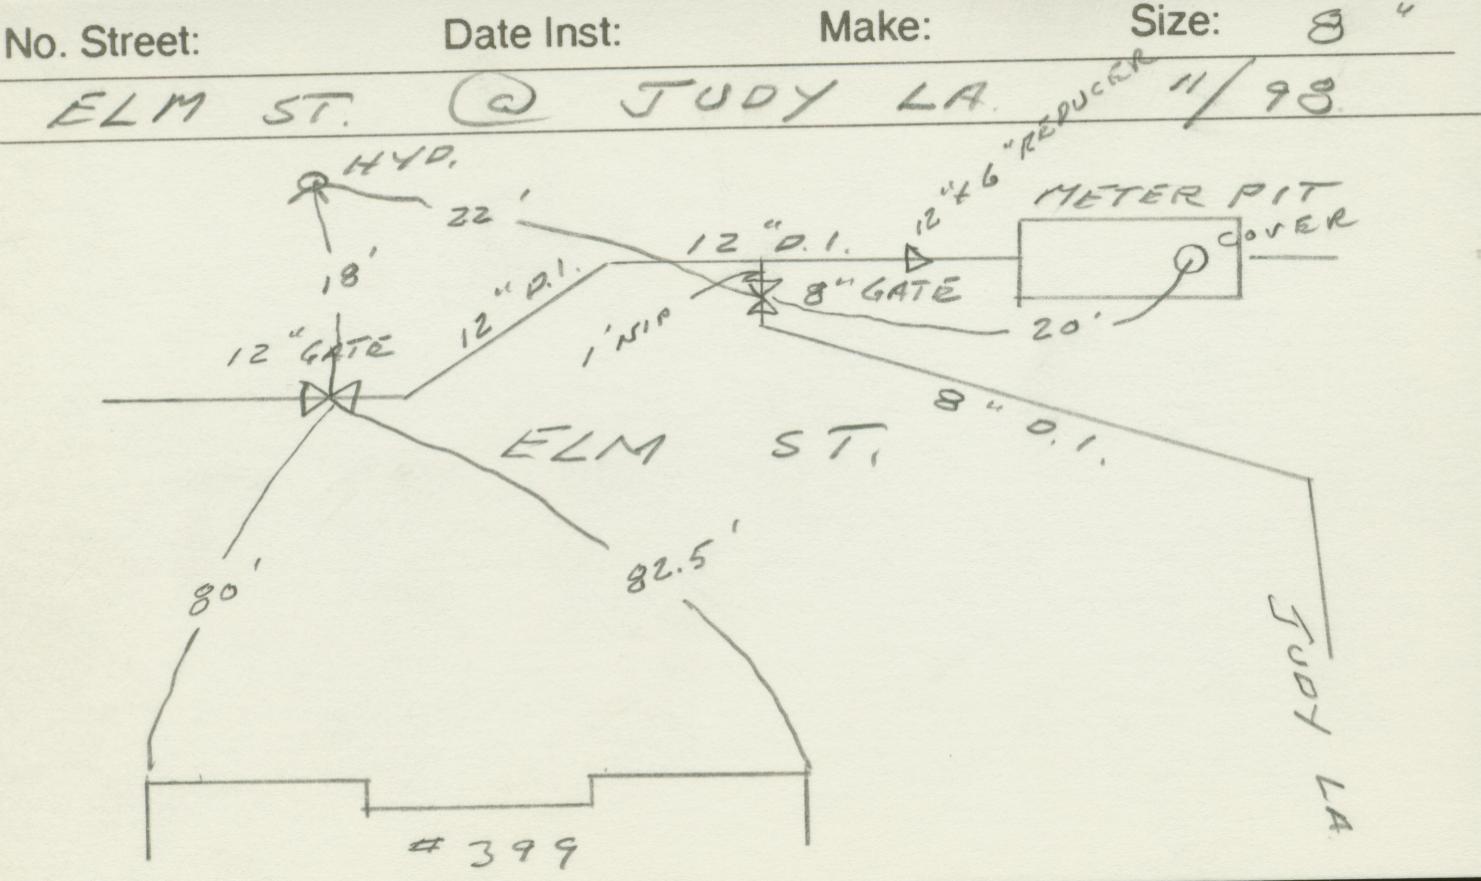 No. Street: Date Inst: Make: Size: 8 "
ELM ST. @ JUDY LA. 11/98
HYD.
22'
18'
12" GATE
12" D.I.
12" D.I.
12" x 6" REDUCER
METER PIT
COVER
8" GATE
1' NIP
20'
8" D.I.
ELM ST.
80'
82.5'
JUDY LA
# 399